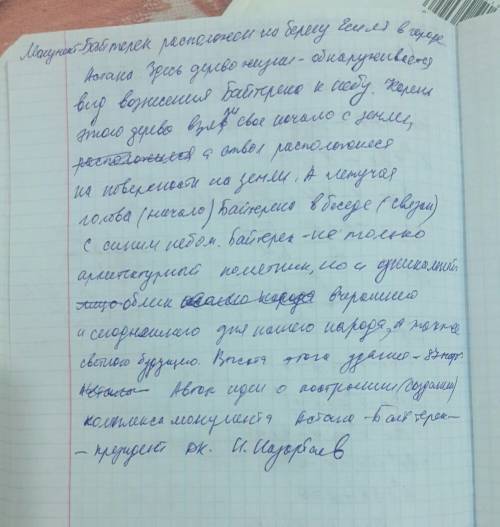 Монумент-Байтерек расположен на берегу Есиля в городе
Астана Здесь дерево жизни - обнаруживается
вид вознесения Байтерека к небу. Корени
этого дерево взяв свое начало с земли,
расположился а ствол расположиеся
на поверхности на земли. А летучая
голова (начало) Байтерека в беседе (связи)
с синим небом. Байтерек - не только
архитектурный пометник, но и уникальный
лицо облик вчерашнего
и сегоднашнего дня нашего народа, а также
светлого будущего. Высота этого здания - 87 метр.
Астаны Автор идеи о построении (создании)
комплекса монумента Астана - Байтерек -
- президент Н. Назарбаев